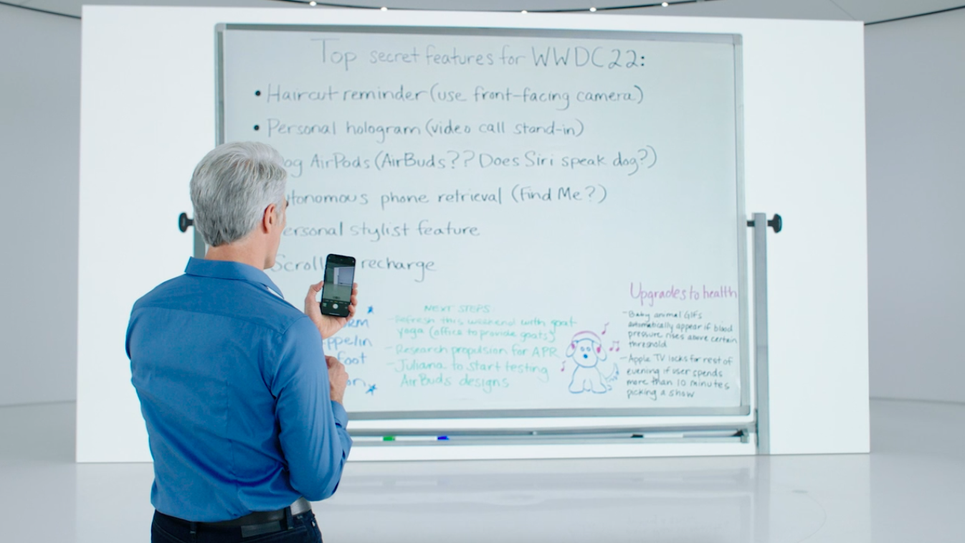 Top secret features for WWDC22:
• Haircut reminder (use front-facing camera)
• Personal hologram (video call stand-in)
AirPods (AirBuds?? Does Siri speak dog?)
phone retrieval (Find Me?)
stylist feature
Scroll recharge
NEXT STEPS
- Refresh this weekend with goat
yoga (office to provide goats)
- Research propulsion for APR
- Juliana to start testing
AirBuds designs
Upgrades to health
- Baby animal GIFs
automatically appear if blood
pressure rises above certain
threshold
- Apple TV locks for rest of
evening if user spends
more than 10 minutes
picking a show